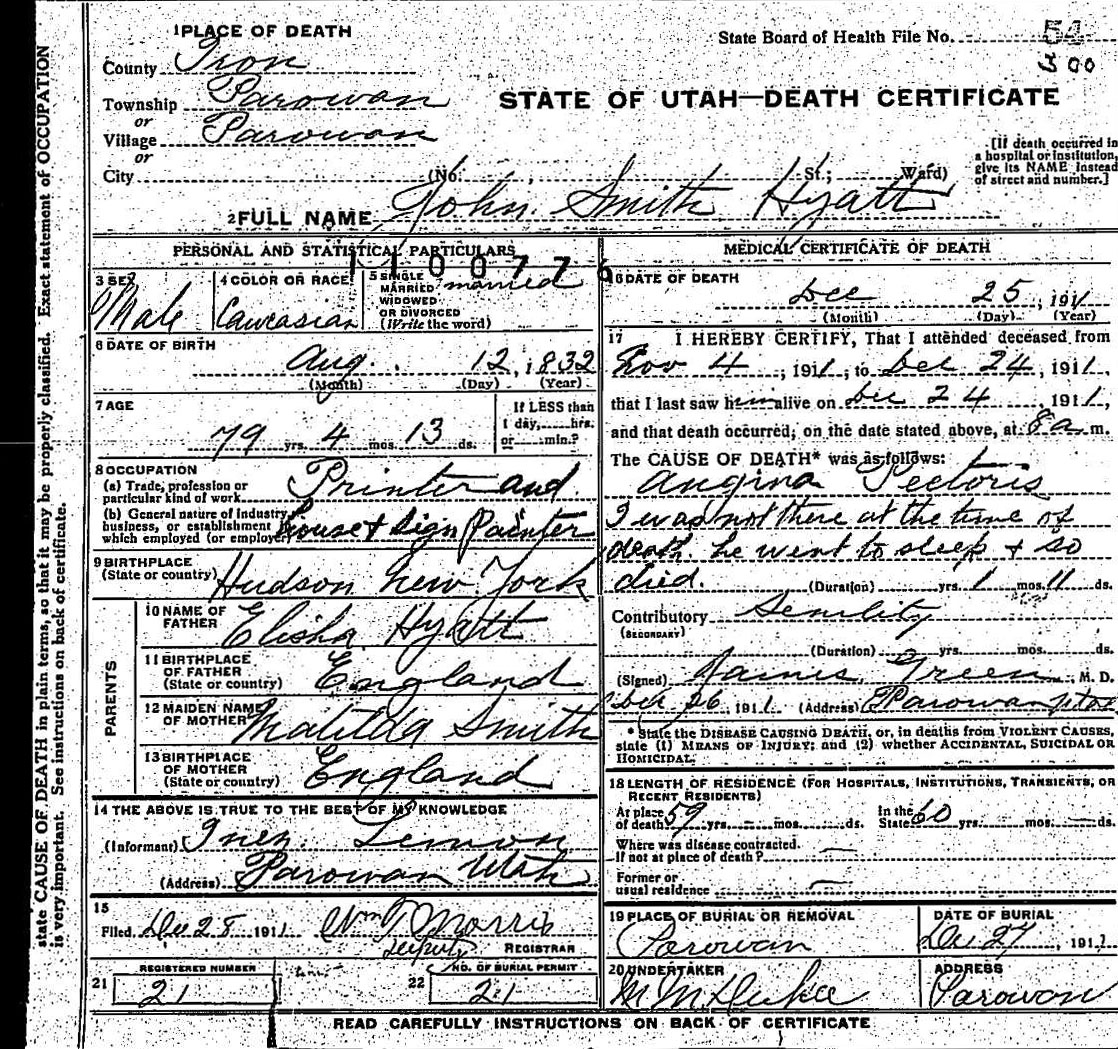 1 PLACE OF DEATH
State Board of Health File No. 54
County Iron
Township Parowan
STATE OF UTAH—DEATH CERTIFICATE
or
Village Parowan
or
City (No. , St.; Ward)
[If death occurred in
a hospital or institution,
give its NAME instead
of street and number.]
2 FULL NAME John Smith Hyatt
PERSONAL AND STATISTICAL PARTICULARS
1100776
3 SEX
Male
4 COLOR OR RACE
Caucasian
5 SINGLE
MARRIED
WIDOWED
OR DIVORCED
(Write the word)
married
6 DATE OF BIRTH
Aug. 12, 1832
(Month) (Day) (Year)
7 AGE
79 yrs. 4 mos. 13 ds.
If LESS than
1 day, hrs.
or min.?
8 OCCUPATION
(a) Trade, profession or
particular kind of work Printer and
(b) General nature of Industry,
business, or establishment in
which employed (or employer) house & Sign Painter
9 BIRTHPLACE
(State or country) Hudson New York
PARENTS
10 NAME OF
FATHER Elisha Hyatt
11 BIRTHPLACE
OF FATHER
(State or country) England
12 MAIDEN NAME
OF MOTHER Matilda Smith
13 BIRTHPLACE
OF MOTHER
(State or country) England
14 THE ABOVE IS TRUE TO THE BEST OF MY KNOWLEDGE
(Informant) Inez Lemon
(Address) Parowan Utah
15
Filed Dec 28 1911 Wm T Morris
Deputy REGISTRAR
21 REGISTERED NUMBER
21
22 NO. OF BURIAL PERMIT
21
MEDICAL CERTIFICATE OF DEATH
16 DATE OF DEATH
Dec 25, 1911
(Month) (Day) (Year)
17 I HEREBY CERTIFY, That I attended deceased from
Nov 4, 1911, to Dec 24, 1911,
that I last saw him alive on Dec 24, 1911,
and that death occurred, on the date stated above, at 8 a m.
The CAUSE OF DEATH* was as follows:
Angina Pectoris
I was not there at the time of
death. he went to sleep & so
died. (Duration) yrs. 1 mos. 11 ds.
Contributory Senility
(SECONDARY)
(Duration) yrs. mos. ds.
(Signed) James Green, M. D.
Dec 26, 1911 (Address) Parowan
* State the DISEASE CAUSING DEATH, or, in deaths from VIOLENT CAUSES,
state (1) MEANS OF INJURY; and (2) whether ACCIDENTAL, SUICIDAL OR
HOMICIDAL.
18 LENGTH OF RESIDENCE (FOR HOSPITALS, INSTITUTIONS, TRANSIENTS, OR
RECENT RESIDENTS)
At place
of death 59 yrs. – mos. – ds. In the
State 60 yrs. – mos. – ds.
Where was disease contracted.
If not at place of death? —
Former or
usual residence —
19 PLACE OF BURIAL OR REMOVAL
Parowan
DATE OF BURIAL
Dec 27, 1911
20 UNDERTAKER
ADDRESS
Parowan
READ CAREFULLY INSTRUCTIONS ON BACK OF CERTIFICATE
state CAUSE OF DEATH in plain terms, so that it may be properly classified. Exact statement of OCCUPATION
is very important. See instructions on back of certificate.